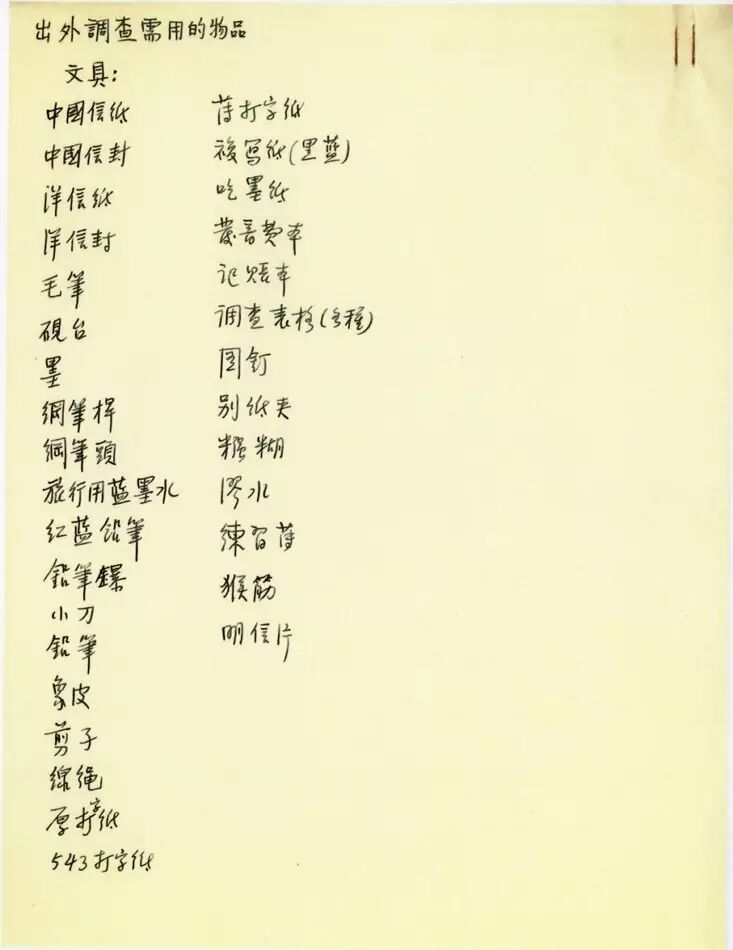 出外調查需用的物品
文具:
中國信纸
中國信封
洋信纸
洋信封
毛筆
硯台
墨
鋼筆桿
鋼筆頭
旅行用蓝墨水
红蓝鉛筆
鉛筆鏍
小刀
鉛筆
象皮
剪子
線绳
厚打字纸
543打字纸
薄打字纸
複写纸(黑蓝)
吃墨纸
發音費本
记賬本
调查表格(各種)
图钉
别纸夹
糨糊
膠水
練習薄
猴筋
明信片